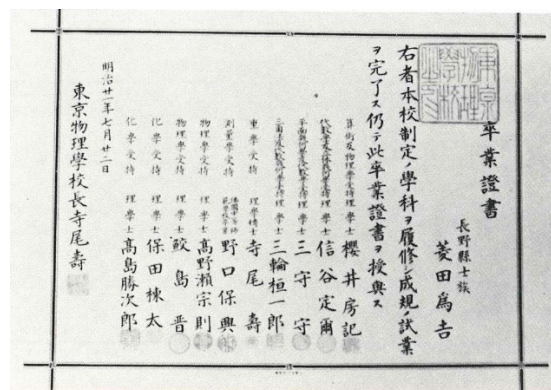 東京物理學校之印
卒業證書
長野縣士族
菱田爲吉
右者本校制定ノ學科ヲ履修シ成規ノ試業
ヲ完了ス仍テ此卒業證書ヲ授與ス
算術及物理學受持 理學士 櫻井房記
理學士 信谷定爾
理學士 三守守
理學士 三輪桓一郎
重學受持 理學博士 寺尾壽
測量學受持 野口保興
物理學受持 理學士 高野瀬宗則
物理學受持 理學士 鮫島晋
化學受持 理學士 保田棟太
化學受持 理學士 高島勝次郎
明治廿一年七月廿二日
東京物理學校長寺尾壽